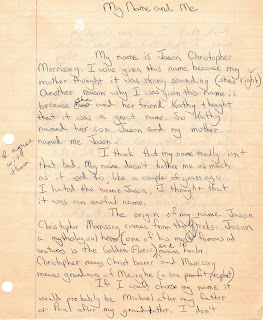 My Name and Me
My name is Jason Christopher
Morrissey. I was given this name because my
mother thought it was strong sounding (she's right)
Another reason why I was given this name is
because she and her friend Kathy thought
that it was a great name. So Kathy
named her son Jason and my mother
named me Jason.
I think that my name really isn't
that bad. My name doesn't bother me as much
as it used to like a couple of years ago
I hated the name Jason. I thought that
it was an awful name.
The origin of my name Jason
Christopher Morrissey comes from the Greeks. Jason
a mythological hero (one of his most famous ad
ventures is the Golden Fleece) means
Christopher means Christ bearer and Morrissey
means grandson of
If I could choose my name it
would probably be Michael after my father
or that after my grandfather. I don't